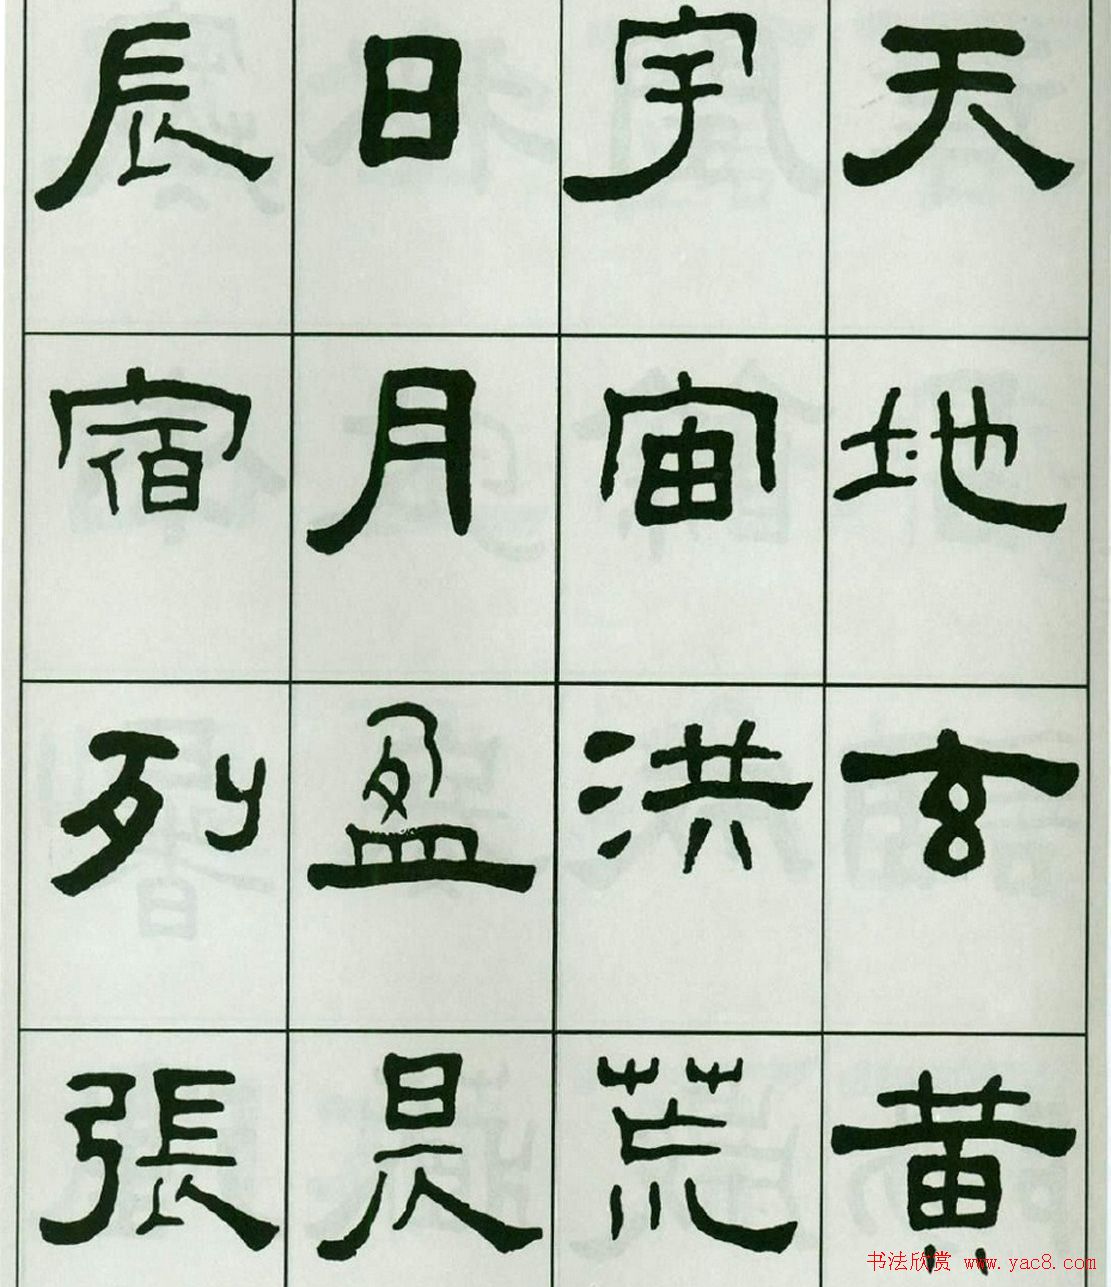 天地玄黄
宇宙洪荒
日月盈昃
辰宿列張
书法欣赏 www.yac8.com